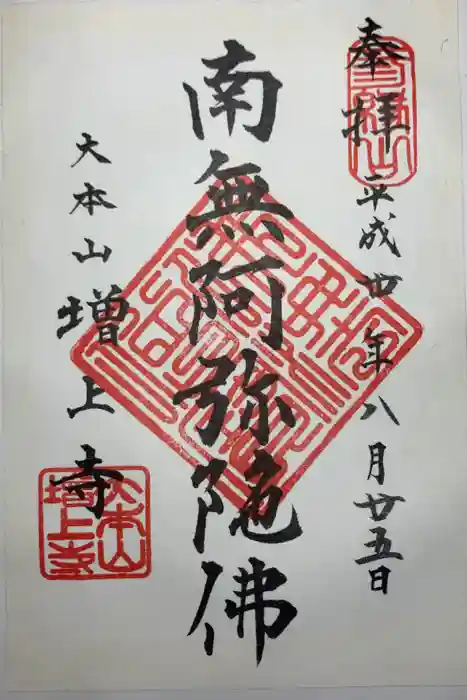 奉拝
平成丗年八月廿五日
南無阿弥陀佛
大本山増上寺
三縁山
大本山
増上寺